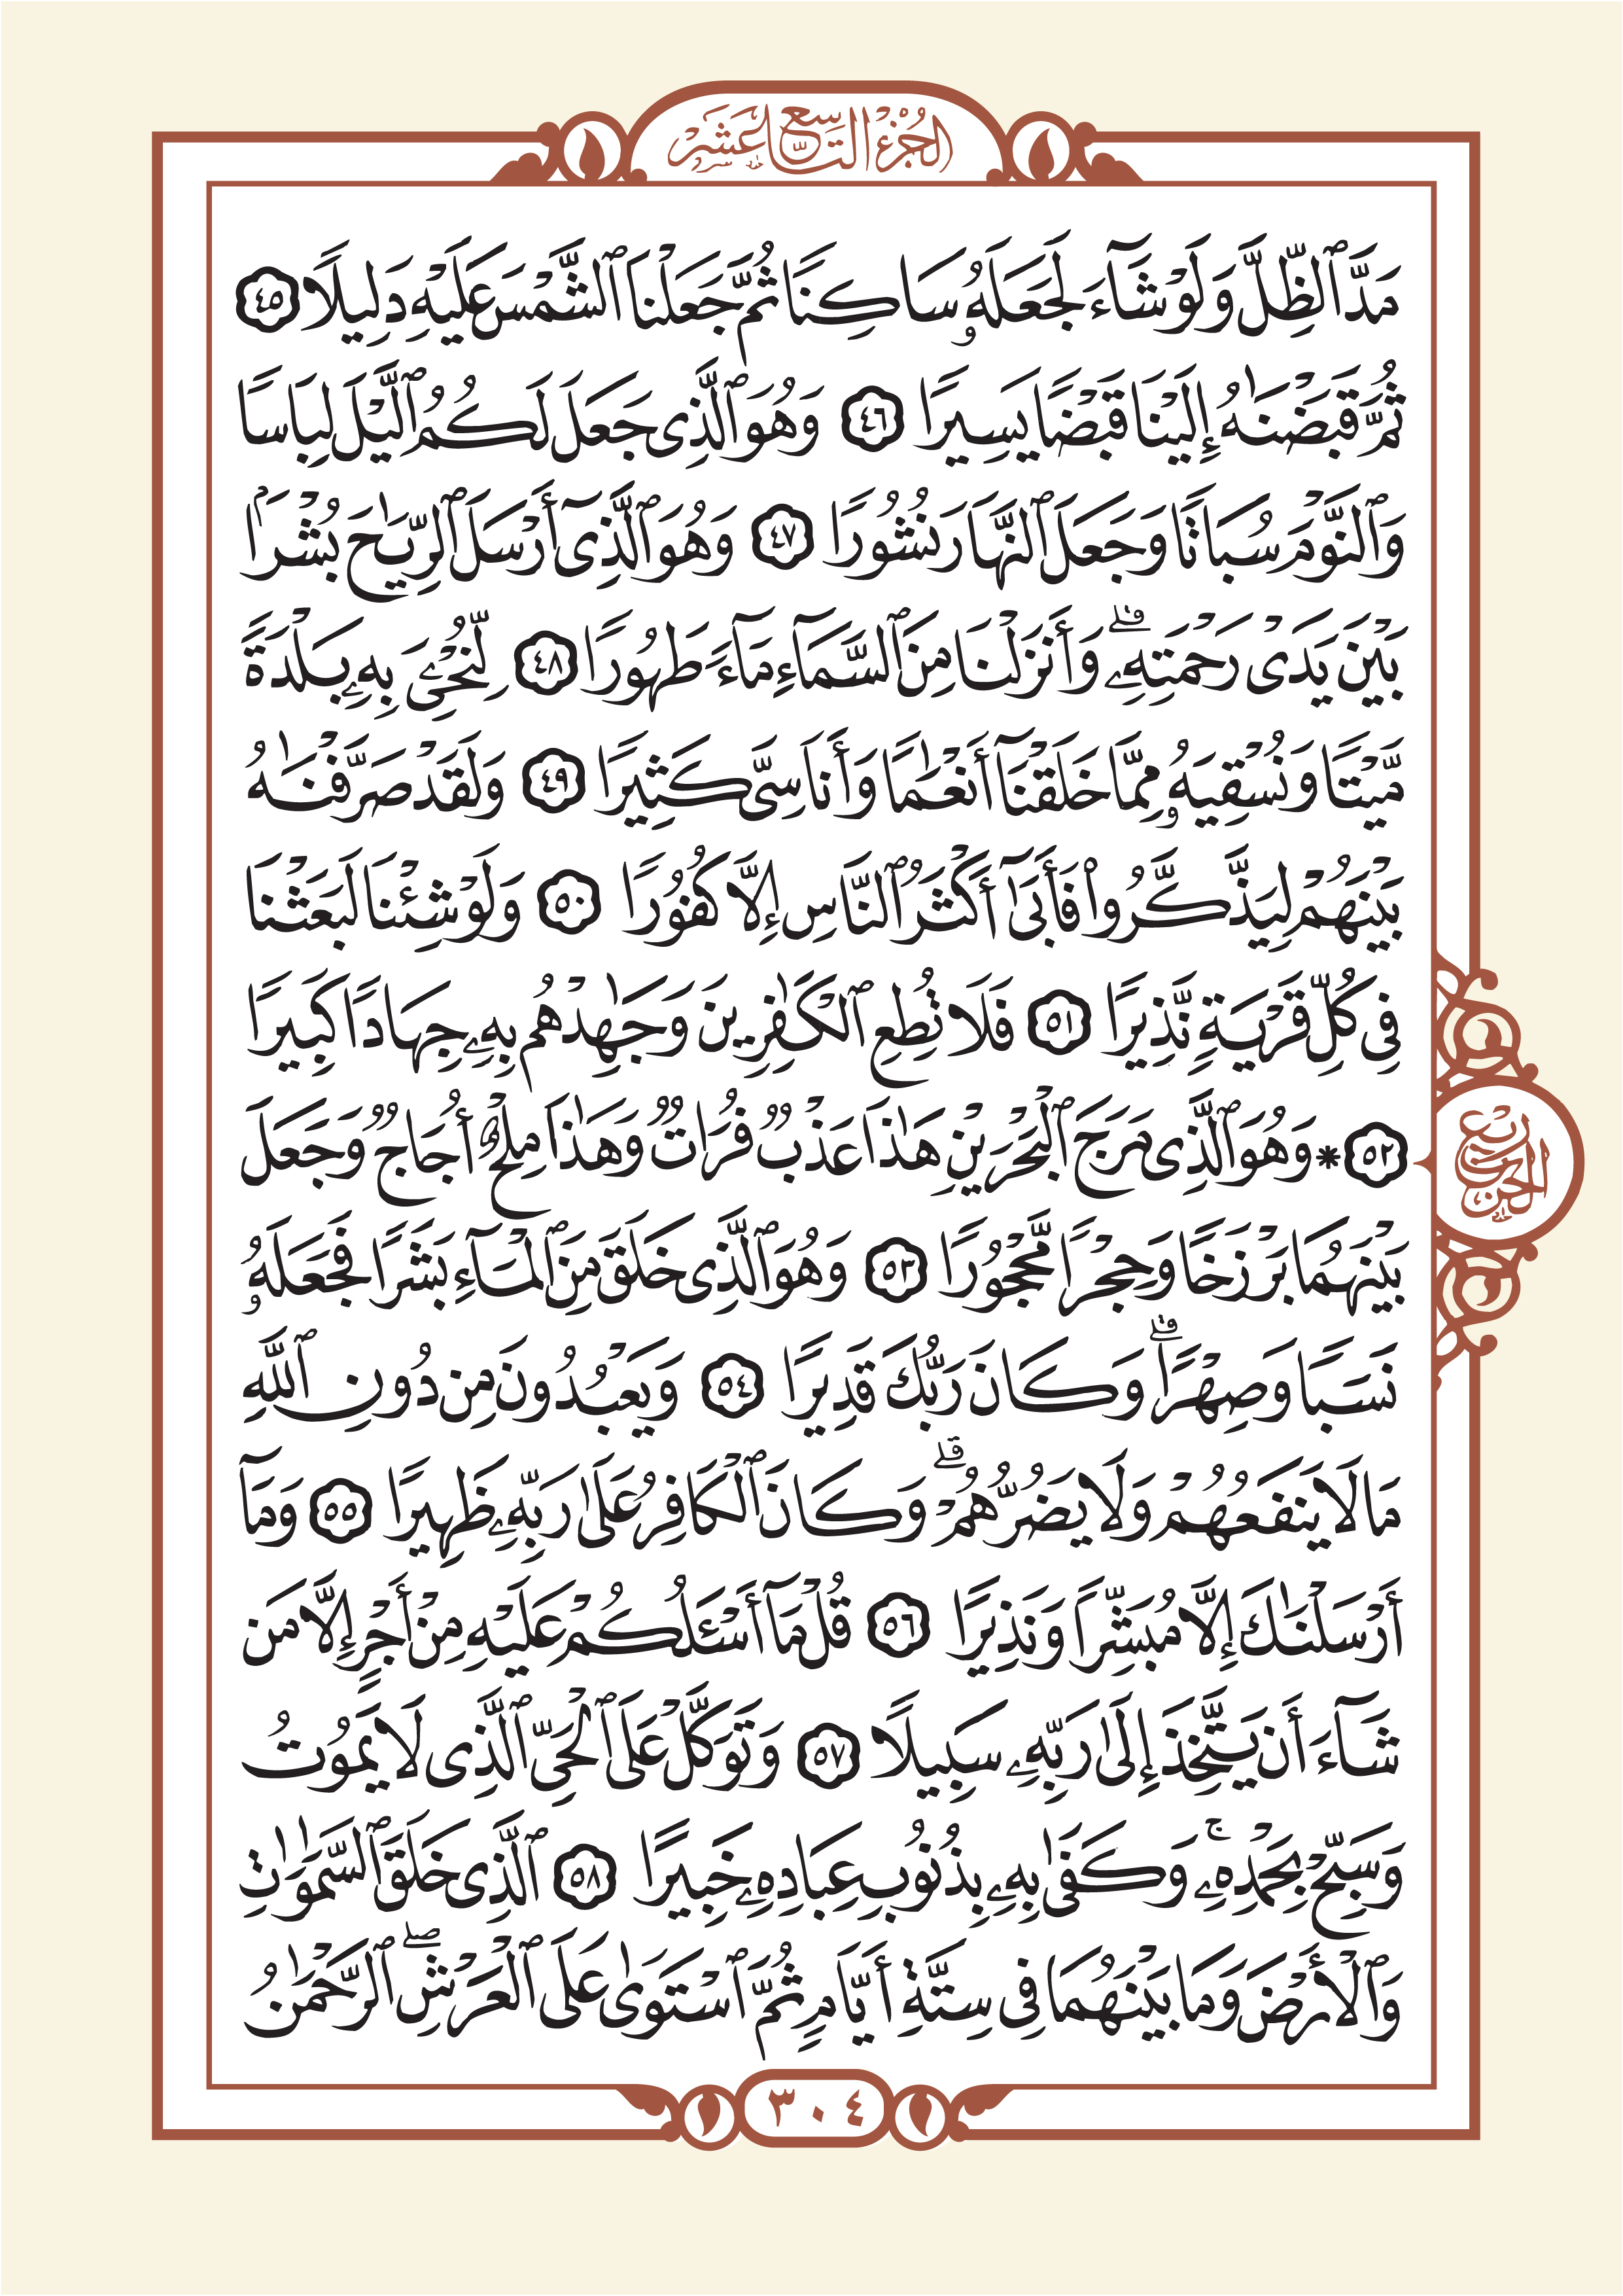 الجزء التاسع عشر
مَدَّ ٱلظِّلَّ وَلَوْ شَآءَ لَجَعَلَهُۥ سَاكِنًا ثُمَّ جَعَلْنَا ٱلشَّمْسَ عَلَيْهِ دَلِيلًا ٤٥
ثُمَّ قَبَضْنَٰهُ إِلَيْنَا قَبْضًا يَسِيرًا ٤٦ وَهُوَ ٱلَّذِى جَعَلَ لَكُمُ ٱلَّيْلَ لِبَاسًا
وَٱلنَّوْمَ سُبَاتًا وَجَعَلَ ٱلنَّهَارَ نُشُورًا ٤٧ وَهُوَ ٱلَّذِىٓ أَرْسَلَ ٱلرِّيَٰحَ بُشْرَۢا
بَيْنَ يَدَىْ رَحْمَتِهِۦۚ وَأَنزَلْنَا مِنَ ٱلسَّمَآءِ مَآءً طَهُورًا ٤٨ لِّنُحْـِۧىَ بِهِۦ بَلْدَةً
مَّيْتًا وَنُسْقِيَهُۥ مِمَّا خَلَقْنَآ أَنْعَٰمًا وَأَنَاسِىَّ كَثِيرًا ٤٩ وَلَقَدْ صَرَّفْنَٰهُ
بَيْنَهُمْ لِيَذَّكَّرُوا۟ فَأَبَىٰٓ أَكْثَرُ ٱلنَّاسِ إِلَّا كُفُورًا ٥٠ وَلَوْ شِئْنَا لَبَعَثْنَا
فِى كُلِّ قَرْيَةٍ نَّذِيرًا ٥١ فَلَا تُطِعِ ٱلْكَٰفِرِينَ وَجَٰهِدْهُم بِهِۦ جِهَادًا كَبِيرًا
٥٢ * وَهُوَ ٱلَّذِى مَرَجَ ٱلْبَحْرَيْنِ هَٰذَا عَذْبٌ فُرَاتٌ وَهَٰذَا مِلْحٌ أُجَاجٌ وَجَعَلَ
ربع الحزب
بَيْنَهُمَا بَرْزَخًا وَحِجْرًا مَّحْجُورًا ٥٣ وَهُوَ ٱلَّذِى خَلَقَ مِنَ ٱلْمَآءِ بَشَرًا فَجَعَلَهُۥ
نَسَبًا وَصِهْرًاۗ وَكَانَ رَبُّكَ قَدِيرًا ٥٤ وَيَعْبُدُونَ مِن دُونِ ٱللَّهِ
مَا لَا يَنفَعُهُمْ وَلَا يَضُرُّهُمْۗ وَكَانَ ٱلْكَافِرُ عَلَىٰ رَبِّهِۦ ظَهِيرًا ٥٥ وَمَآ
أَرْسَلْنَٰكَ إِلَّا مُبَشِّرًا وَنَذِيرًا ٥٦ قُلْ مَآ أَسْـَٔلُكُمْ عَلَيْهِ مِنْ أَجْرٍ إِلَّا مَن
شَآءَ أَن يَتَّخِذَ إِلَىٰ رَبِّهِۦ سَبِيلًا ٥٧ وَتَوَكَّلْ عَلَى ٱلْحَىِّ ٱلَّذِى لَا يَمُوتُ
وَسَبِّحْ بِحَمْدِهِۦۚ وَكَفَىٰ بِهِۦ بِذُنُوبِ عِبَادِهِۦ خَبِيرًا ٥٨ ٱلَّذِى خَلَقَ ٱلسَّمَٰوَٰتِ
وَٱلْأَرْضَ وَمَا بَيْنَهُمَا فِى سِتَّةِ أَيَّامٍ ثُمَّ ٱسْتَوَىٰ عَلَى ٱلْعَرْشِۖ ٱلرَّحْمَٰنُ
٣٠٤